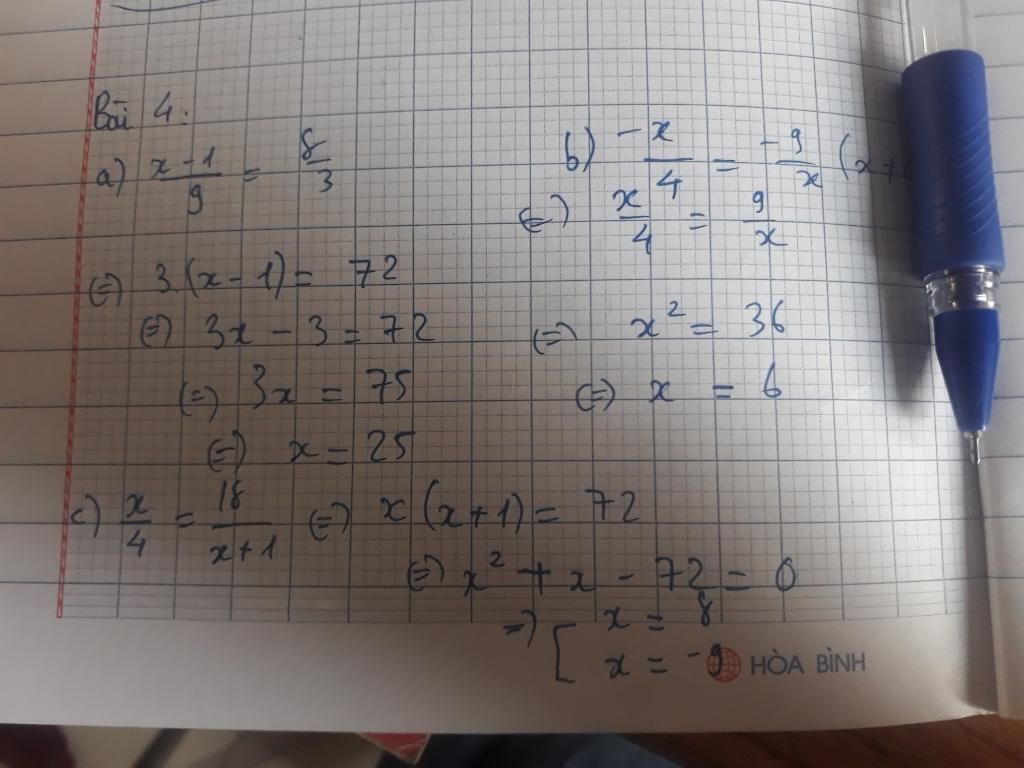 Bài 4:
a) x-1/9 = 8/3
(=) 3(x-1) = 72
(=) 3x - 3 = 72
(=) 3x = 75
(=) x = 25
b) -x/4 = -9/x (x≠
(=) x/4 = 9/x
(=) x² = 36
(=) x = 6
c) x/4 = 18/x+1 (=) x(x+1) = 72
(=) x² + x - 72 = 0
=) [ x = 8
x = -9
HÒA BÌNH